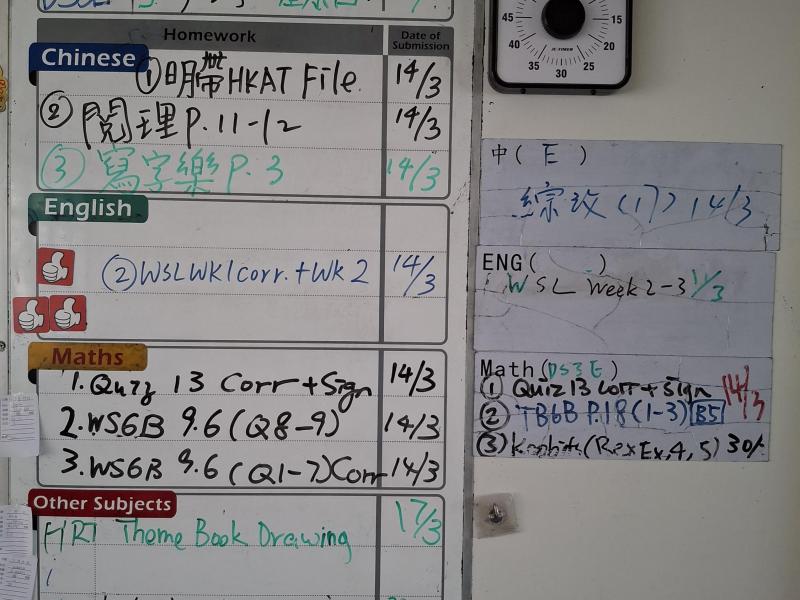 Homework
Date of Submission
Chinese
① HKAT File 14/3
② 閱理 P. 11-12 14/3
③ 寫字樂 P. 3 14/3
English
② WSL WK1 corr. + Wk 2 14/3
Maths
1. Quiz 13 Corr + Sign 14/3
2. WS6B 9.6 (Q8-9) 14/3
3. WS6B 9.6 (Q1-7) Corr 14/3
Other Subjects
HRT Theme Book Drawing 17/3
45 15
40 20
35 30 25
中( E )
綜 (17) 14/3
ENG( )
WSL Week 2-3
Math(DS3 E)
① Quiz 13 Corr + Sign 14/3
② TB6B P.18 (1-3) B5
③ (Rex Ex, 4, 5)